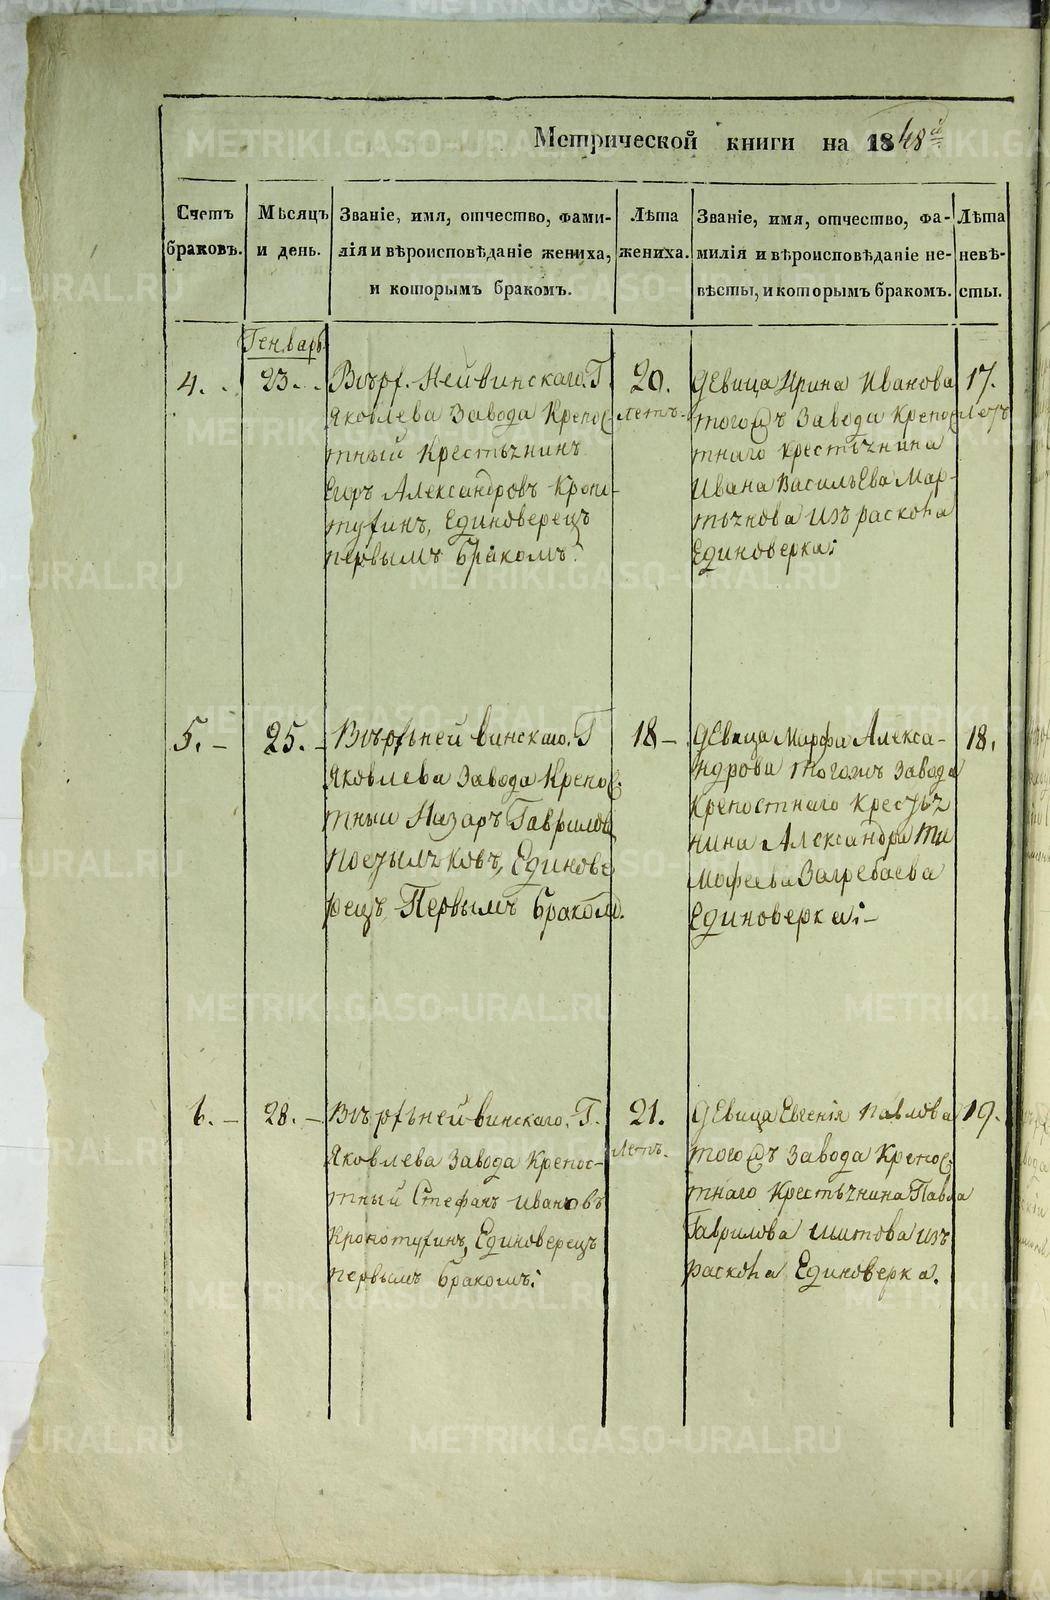 Метрической книги на 1848й
Счетъ браковъ.
Мѣсяцъ и день.
Званіе, имя, отчество, фами-
лія и вѣроисповѣданіе жениха,
и которымъ бракомъ.
Лѣта жениха.
Званіе, имя, отчество, фа-
милія и вѣроисповѣданіе не-
вѣсты, и которымъ бракомъ.
Лѣта невѣ-
сты.
Генварь
4.
23.
Нейвинскаго. Г.
Яковлева Завода Крепос
тный Крестьянинъ
Егоръ Александровъ Кропо-
тухинъ, Единоверецъ
первымъ бракомъ.
20.
Летъ.
девица Ирина Иванова
Завода Крепос
тнаго крестьянина
Ивана Васильева Мар-
тьянова изъ раскола
Единоверка:
17.
Летъ
5. -
25. -
Верхънейвинскаго. Г
Яковлева Завода Крепос
тный Назаръ Гавриловъ
Единове
рецъ, Первымъ браком.
18 -
девица Марфа Алекса-
ндрова тогожъ завода
Крепостнаго кресть
нина Александра Ти
мофеева Загребаева
Единоверка: -
18.
6. -
28. -
Верхънейвинскаго. Г.
Яковлева Завода Крепос-
тный Стефанъ Ивановъ
Кропотухинъ, Единоверецъ
первымъ бракомъ:
21.
Летъ.
девица Евгенія Павлова
Завода Крепос
тнаго Крестьянина Павла
Гаврилова Шитова изъ
раскола Единоверка.
19.
METRIKI.GASO-URAL.RU